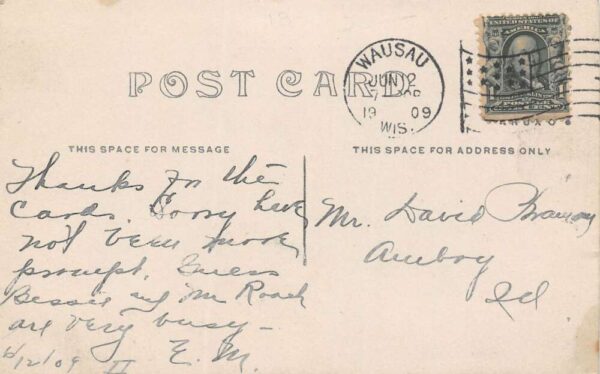 POST CARD
WAUSAU
JUN 12
1909
WIS.
UNITED STATES OF
AMERICA
POSTAGE
THIS SPACE FOR MESSAGE
THIS SPACE FOR ADDRESS ONLY
Thanks for the
Cards. Sorry have
not been more
prompt. Guess
Bessie and Mr Roach
are very busy -
6/12/09 E. M.
Mr. David
Amboy